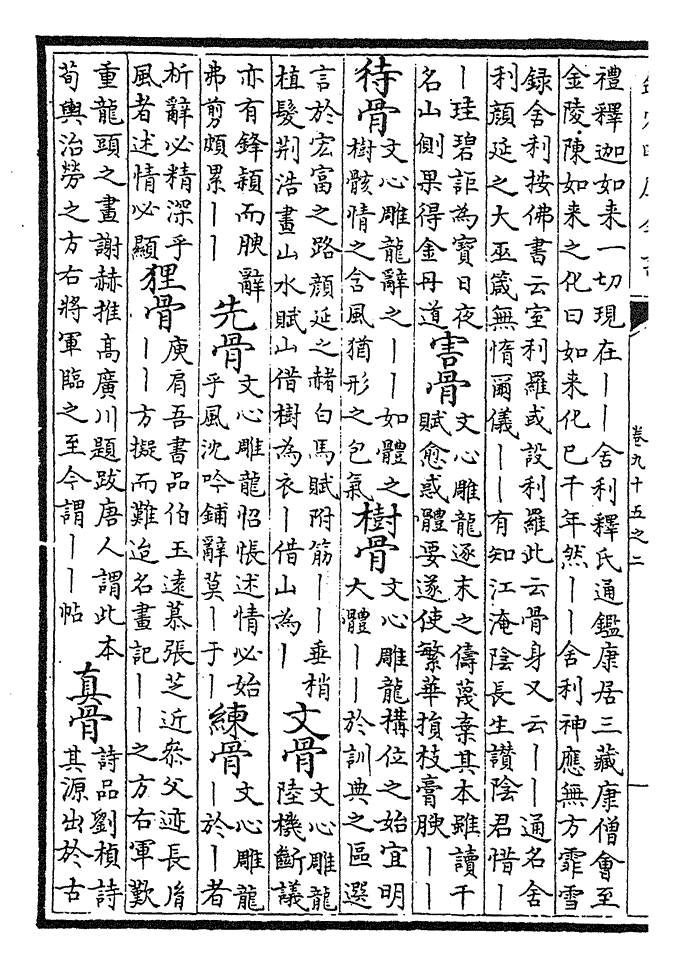 卷九十五之二
一
禮釋迦如来一切現在丨丨舍利釋氏通鑑康居三藏康僧會至
金陵陳如来之化曰如来化已千年然丨丨舍利神應無方霏雪
録舍利按佛書云室利羅或設利羅此云骨身又云丨丨通名舍
利顔延之大巫箴無惰爾儀丨丨有知江淹陰長生讃陰君惜丨
丨珪碧詎為寶日夜
名山側果得金丹道
害骨
文心雕龍逐末之儔蔑棄其本雖讀千
賦愈惑體要遂使繁華損枝膏腴丨丨
待骨
文心雕龍辭之丨丨如體之
樹骸情之含風猶形之包氣
樹骨
文心雕龍搆位之始宜明
大體丨丨於訓典之區選
言於宏富之路顔延之赭白馬賦附筋丨丨垂梢
植髮荆浩畫山水賦山借樹為衣丨借山為丨
文骨
文心雕龍
陸機斷議
亦有鋒穎而腴辭
弗剪頗累丨丨
先骨
文心雕龍怊悵述情必始
乎風沈吟鋪辭莫丨于丨
練骨
文心雕龍
丨於丨者
析辭必精深乎
風者述情必顯
狸骨
庾肩吾書品伯玉遠慕張芝近叅父迹長胤
丨丨方擬而難迨名畫記丨丨之方右軍歎
重龍頭之畫謝赫推高廣川題跋唐人謂此本
荀輿治勞之方右將軍臨之至今謂丨丨帖
真骨
詩品劉楨詩
其源出於古